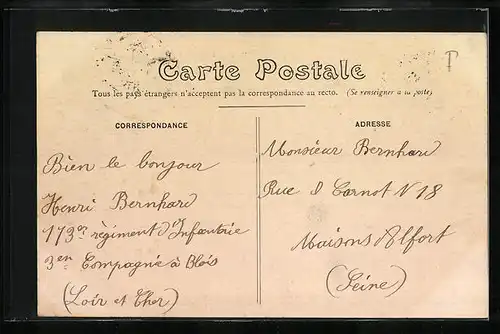 P
Carte Postale
Tous les pays étrangers n'acceptent pas la correspondance au recto. (Se renseigner à la poste)
CORRESPONDANCE
Bien le bonjour
Henri Bernhard
173er règiment d'Infantrie
3en Compagnie à Blois
(Loir et Cher)
ADRESSE
Monsieur Bernhard
Rue d Carnot N 18
Maisons Alfort
(Seine)